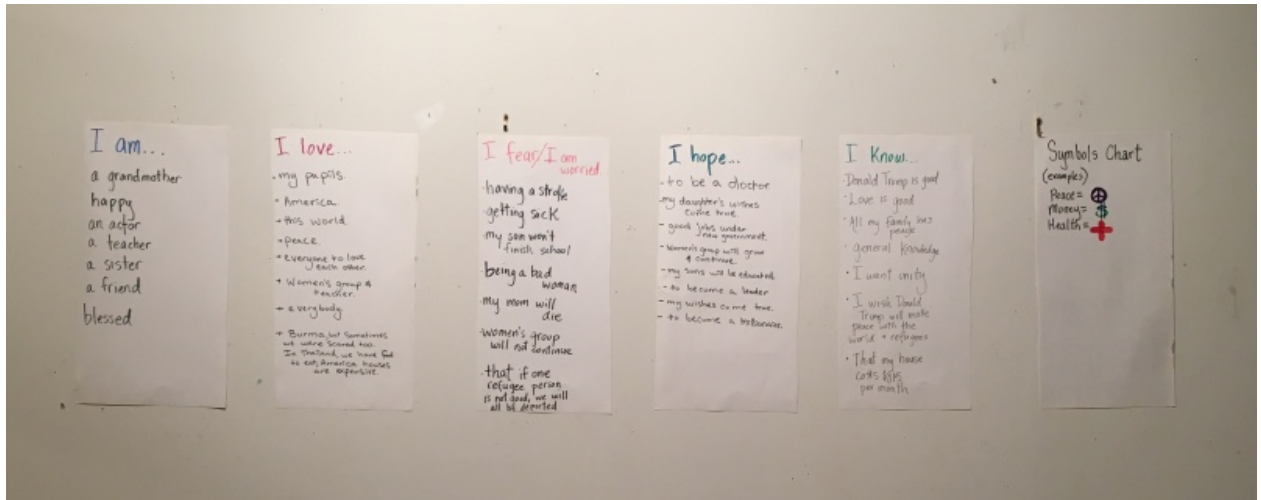 I am...
a grandmother
happy
an actor
a teacher
a sister
a friend
blessed
I love...
• my pupils.
• America.
• this world
• peace.
• everyone to love
each other.
• Women's group &
teacher.
• everybody
• Burma, but sometimes
we were scared too.
In Thailand, we have food
to eat, America houses
are expensive.
I fear/I am
worried
• having a stroke
• getting sick
• my son won't
finish school
• being a bad
woman
• my mom will
die
• women's group
will not continue
• that if one
refugee person
is not good, we will
all be deported
I hope...
- to be a doctor
- my daughter's wishes
come true.
- good jobs under
new government.
- Women's group will grow
& continue.
- my sons will be educated
- to become a leader
- my wishes come true.
- to become a
I Know...
• Donald Trump is good
• Love is good
• All my family has
people
• general Knowledge
• I want unity
• I wish Donald
Trump will make
peace with the
world + refugees
• That my house
costs
per month
Symbols Chart
(examples)
Peace= ☮
Money= $
Health= ✚